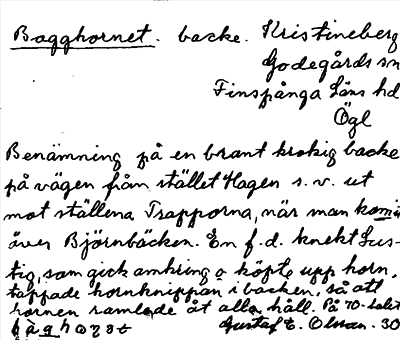 Bagghornet. backe. Kristineberg
Godegårds sn
Finspånga Läns hd
Ögl
Benämning på en brant krokig backe
på vägen från stället Hagen s.v. ut
mot ställena Trapporna, när man kommit
över Björnbäcken. En f.d. knekt Lus-
tig, som gick omkring o köpte upp horn,
tappade hornknippan i backen, så att
hornen ramlade åt alla håll. På 70-talet
Gustaf E. Olsson. 30